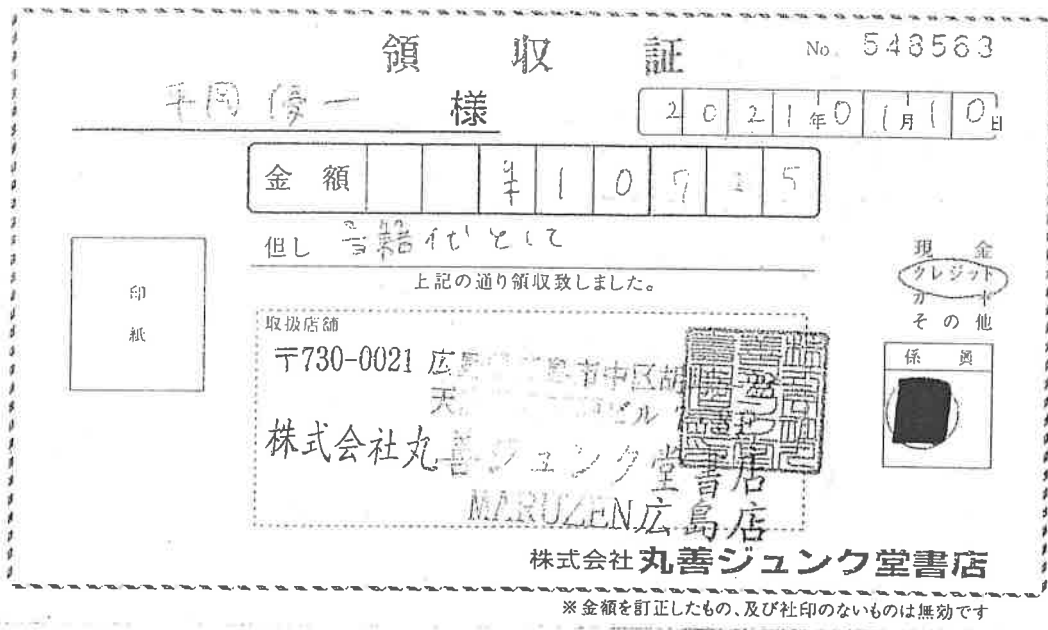 領収証
No. 548563
平岡優一 様
2021年01月10日
金額 ¥107 5
但し 書籍代として
上記の通り領収致しました。
印
紙
現金
クレジット
カード
その他
係員
取扱店舗
〒730-0021 広島 市中区胡
天 ビル
株式会社丸善ジュンク堂書店
MARUZEN広島店
株式会社丸善ジュンク堂書店
※金額を訂正したもの、及び社印のないものは無効です